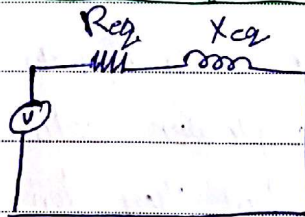 Req. Xeq
V